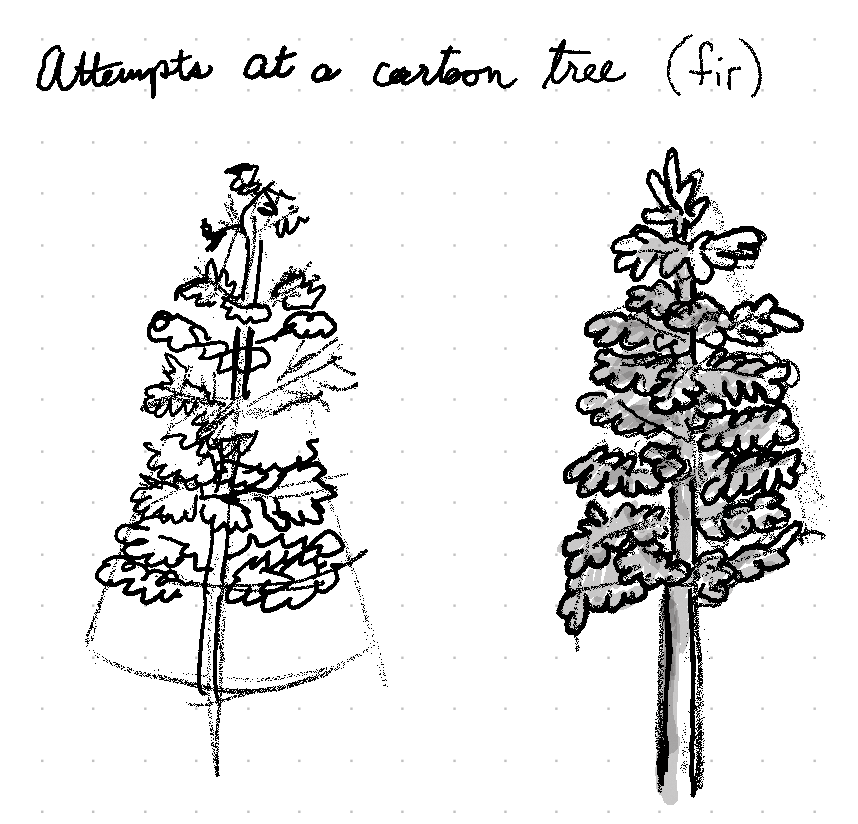 Attempts at a cartoon tree (fir)